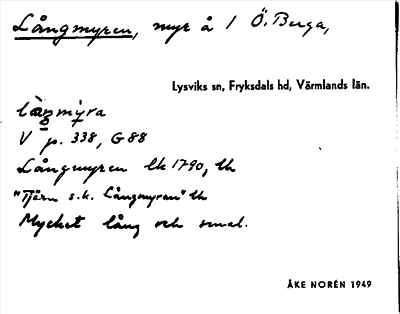 Långmyren, myr å 1 Ö. Berga,
Lysviks sn, Fryksdals hd, Värmlands län.
låŋmỳra
V p. 338, G 88
Långmyren lk 1790, th
"Tjärn s.k. Långmyran" th
Mycket lång och smal.
ÅKE NORÉN 1949